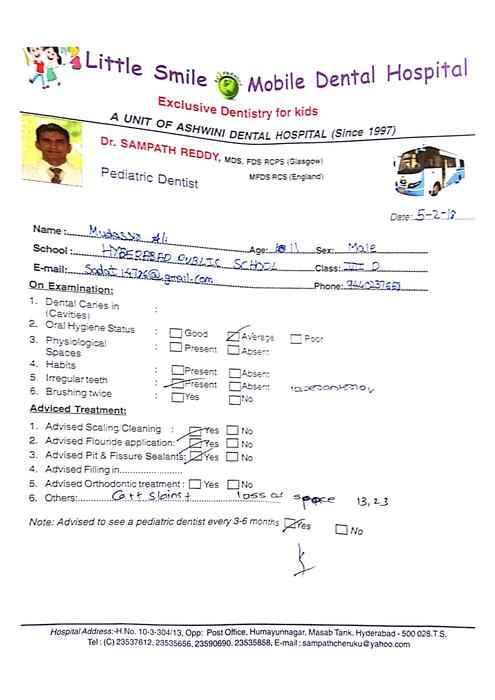 Little Smile Mobile Dental Hospital
Exclusive Dentistry for kids
A UNIT OF ASHWINI DENTAL HOSPITAL (Since 1997)
Dr. SAMPATH REDDY, MDS, FDS RCPS (Glasgow)
Pediatric Dentist MFDS RCS (England)
Date: 5-2-18
Name: Mudassir Ali Age: 11 Sex: Male
School: HYDERABAD PUBLIC SCHOOL Class: III D
E-mail: Sadat14786@gmail.com Phone:
On Examination:
1. Dental Caries in :
(Cavities)
2. Oral Hygiene Status : Good Average Poor
3. Physiological : Present Absent
Spaces
4. Habits : Present Absent
5. Irregular teeth : Present Absent
6. Brushing twice : Yes No
Adviced Treatment:
1. Advised Scaling Cleaning : Yes No
2. Advised Flouride application: Yes No
3. Advised Pit & Fissure Sealants: Yes No
4. Advised Filling in....................
5. Advised Orthodontic treatment : Yes No
6. Others: loss of space 13, 23
Note: Advised to see a pediatric dentist every 3-6 months Yes No
Hospital Address:-H.No. 10-3-304/13, Opp: Post Office, Humayunnagar, Masab Tank, Hyderabad - 500 028.T.S.
Tel : (C) 23537612, 23535656, 23590690, 23535858, E-mail : sampathcheruku@yahoo.com